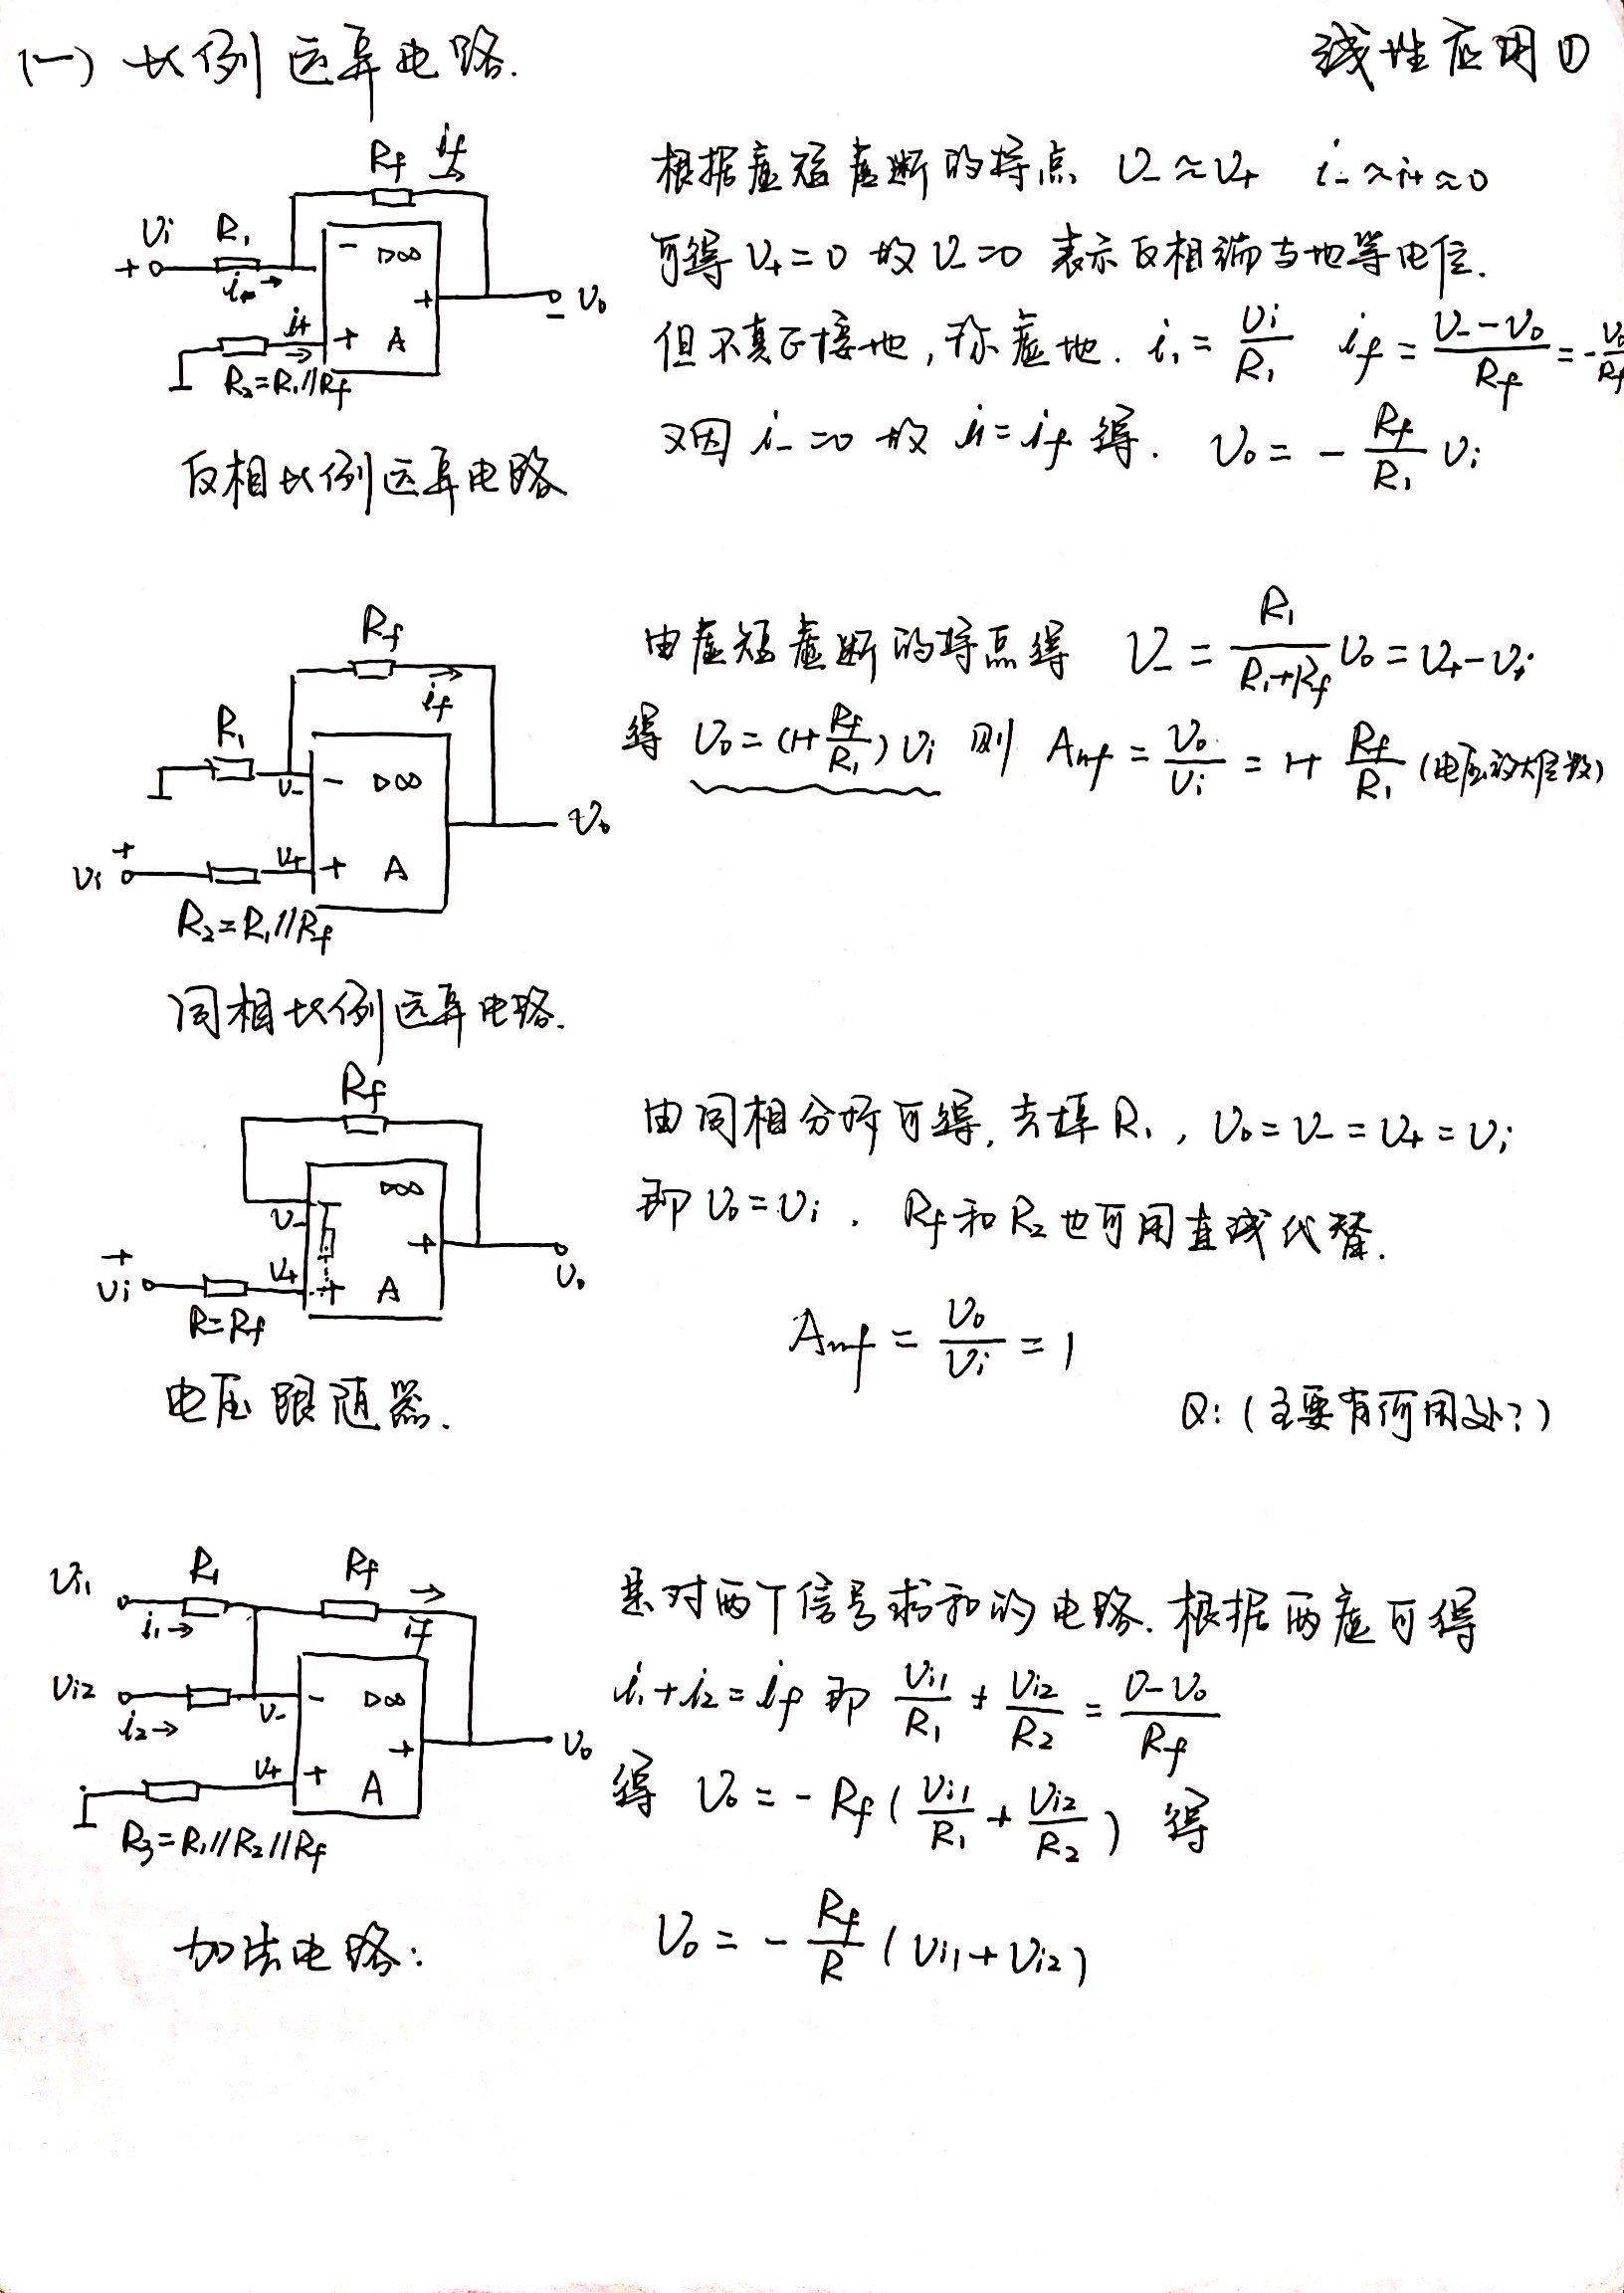 (一) 比例运算电路. 线性应用①
Rf if
Ui R₁
+ i₁→ - ▷∞ + U₀ -
i+ → + A
R₂=R₁//Rf
反相比例运算电路
根据虚短虚断的特点 U₋≈U₊ i₋≈i₊≈0
可得 U₊=0 故 U₋=0 表示反相端与地等电位.
但不真正接地,称虚地. i₁=Ui/R₁ if=(U₋-U₀)/Rf=-U₀/Rf
又因 i₋=0 故 i₁=if 得. U₀=-(Rf/R₁)Ui
Rf
if
R₁ U₋ - ▷∞
U₀
+ Ui U₊ + A
R₂=R₁//Rf
同相比例运算电路.
由虚短虚断的特点得 U₋=(R₁/(R₁+Rf))U₀=U₊-Ui
得 U₀=(1+Rf/R₁)Ui 则 Auf=U₀/Ui=1+Rf/R₁ (电压放大倍数)
Rf
▷∞
U₋ +
+ Ui U₊ + A U₀
R=Rf
电压跟随器.
由同相分析可得,去掉R₁, U₀=U₋=U₊=Ui
即 U₀=Ui. Rf和R₂也可用直线代替.
Auf=U₀/Ui=1
Q:(主要有何用处?)
Ui1 R₁ Rf →
i₁→ if
Ui2 - ▷∞
i₂→ U₋ + U₀
U₊ + A
R₃=R₁//R₂//Rf
加法电路:
是对两个信号求和的电路.根据两虚可得
i₁+i₂=if 即 Ui1/R₁+Ui2/R₂=(0-U₀)/Rf
得 U₀=-Rf(Ui1/R₁+Ui2/R₂) 得
U₀=-(Rf/R)(Ui1+Ui2)